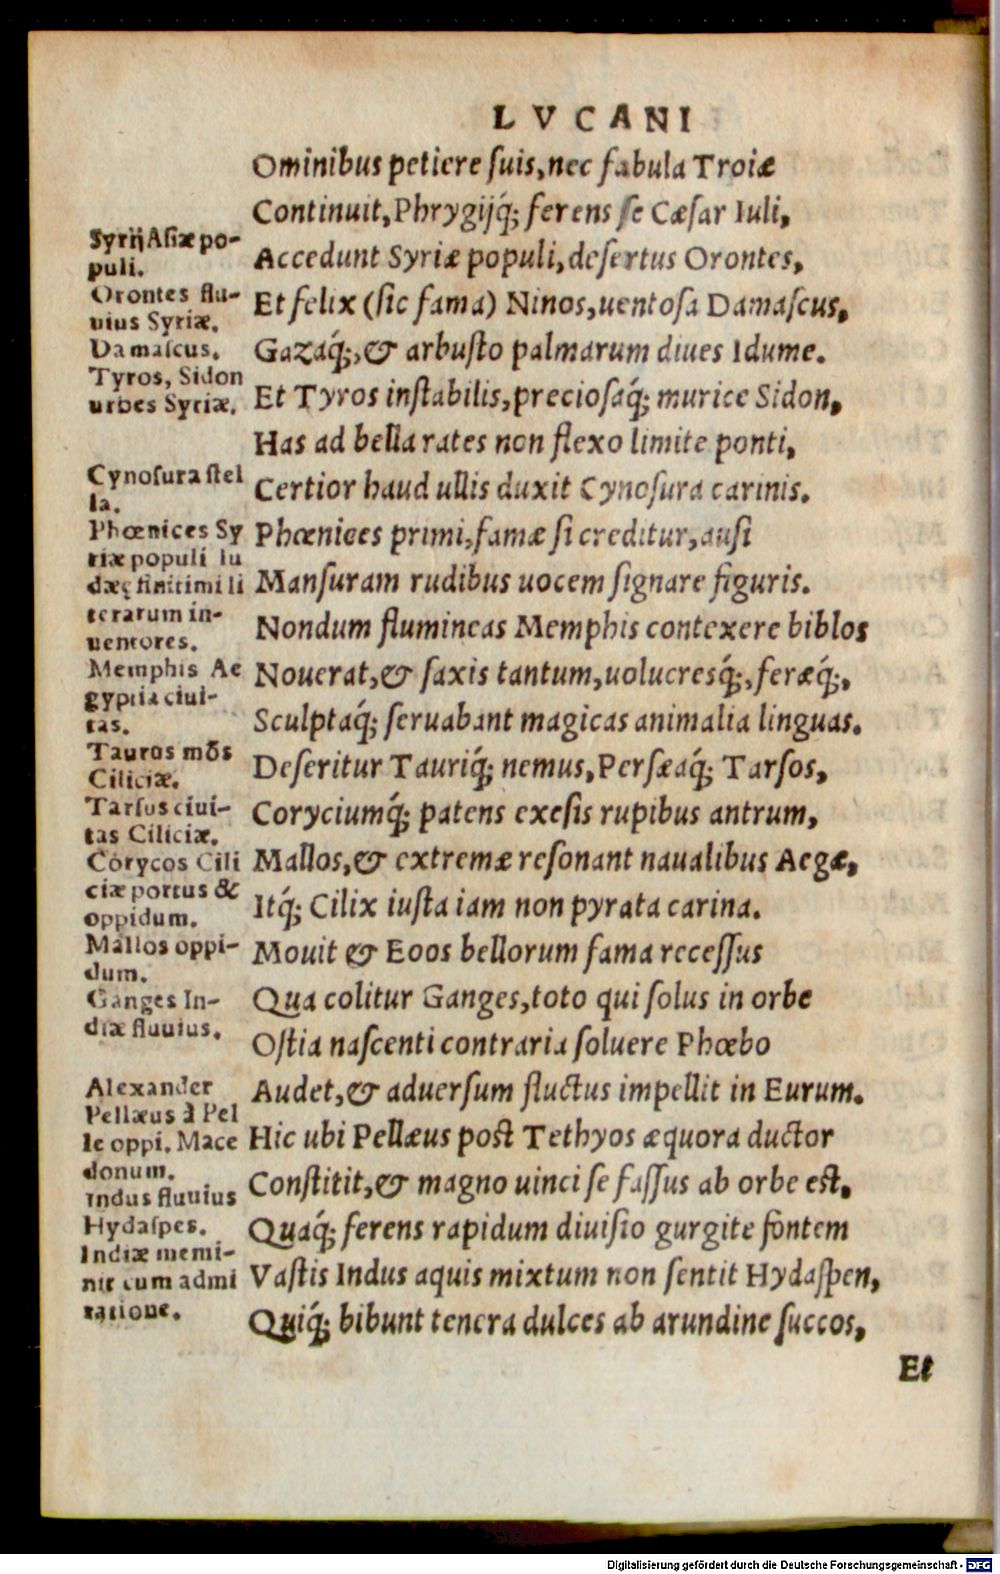 LVCANI
Ominibus petiere ſuis, nec fabula Troiæ
Continuit, Phrygijq́; ferens ſe Cæſar Iuli,
Accedunt Syriæ populi, deſertus Orontes,
Et felix (ſic fama) Ninos, uentoſa Damaſcus,
Gazaq́;, & arbuſto palmarum diues Idume.
Et Tyros inſtabilis, precioſaq́; murice Sidon,
Has ad bella rates non flexo limite ponti,
Certior haud ullis duxit Cynoſura carinis.
Phœnices primi, famæ ſi creditur, auſi
Manſuram rudibus uocem ſignare figuris.
Nondum flumineas Memphis contexere biblos
Nouerat, & ſaxis tantum, uolucresq́;, feræq́;,
Sculptaq́; ſeruabant magicas animalia linguas.
Deſeritur Tauriq́; nemus, Perſæaq́; Tarſos,
Coryciumq́; patens exeſis rupibus antrum,
Mallos, & extremæ reſonant naualibus Aegæ,
Itq́; Cilix iuſta iam non pyrata carina.
Mouit & Eoos bellorum fama receſſus
Qua colitur Ganges, toto qui ſolus in orbe
Oſtia naſcenti contraria ſoluere Phœbo
Audet, & aduerſum fluctus impellit in Eurum.
Hic ubi Pellæus poſt Tethyos æquora ductor
Conſtitit, & magno uinci ſe faſſus ab orbe eſt,
Quaq́; ferens rapidum diuiſio gurgite fontem
Vaſtis Indus aquis mixtum non ſentit Hydaſpen,
Quiq́; bibunt tenera dulces ab arundine ſuccos,
Et
Syrij Aſiæ po-
puli.
Orontes flu-
uius Syriæ.
Damaſcus.
Tyros, Sidon
urbes Syriæ.
Cynoſura ſtel
la.
Phœnices Sy
riæ populi Iu
dæę finitimi li
terarum in-
uentores.
Memphis Ae
gyptia ciui-
tas.
Tauros mõs
Ciliciæ.
Tarſus ciui-
tas Ciliciæ.
Corycos Cili
ciæ portus &
oppidum.
Mallos oppi-
dum.
Ganges In-
diæ fluuius.
Alexander
Pellæus à Pel
le oppi. Mace
donum.
Indus fluuius
Hydaſpes.
Indiæ memi-
nit cum admi
ratione.
Digitalisierung gefördert durch die Deutsche Forschungsgemeinschaft - DFG